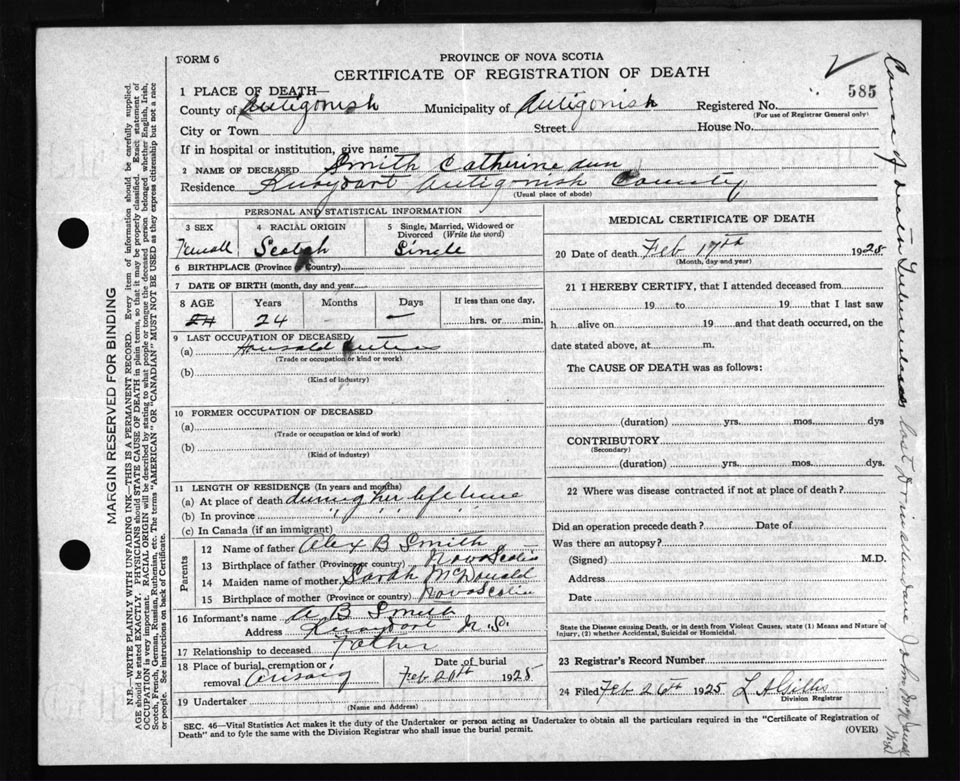 FORM 6
PROVINCE OF NOVA SCOTIA
CERTIFICATE OF REGISTRATION OF DEATH
585
1 PLACE OF DEATH—
County of Antigonish Municipality of Antigonish Registered No.
(For use of Registrar General only)
City or Town Street House No.
If in hospital or institution, give name
2 NAME OF DECEASED Smith Catherine Ann
Residence Knoydart Antigonish County
(Usual place of abode)
PERSONAL AND STATISTICAL INFORMATION
3 SEX 4 RACIAL ORIGIN 5 Single, Married, Widowed or Divorced (Write the word)
Femall Scotch Single
6 BIRTHPLACE (Province or Country)
7 DATE OF BIRTH (month, day and year)
8 AGE Years Months Days If less than one day,
24 24 — hrs. or min.
9 LAST OCCUPATION OF DECEASED
(a) Housald
(Trade or occupation or kind or work)
(b)
(Kind of industry)
10 FORMER OCCUPATION OF DECEASED
(a)
(Trade or occupation or kind of work)
(b)
(Kind of industry)
11 LENGTH OF RESIDENCE (In years and months)
(a) At place of death during her life time
(b) In province " " " "
(c) In Canada (if an immigrant)
Parents
12 Name of father Alex B Smith
13 Birthplace of father (Province or country) Nova Scotia
14 Maiden name of mother Sarah McDonald
15 Birthplace of mother (Province or country) Nova Scotia
16 Informant's name A B Smith
Address Knoydart N.S.
17 Relationship to deceased Father
18 Place of burial, cremption or removal Arisaig Date of burial Feb 20th 1925
19 Undertaker
(Name and Address)
MEDICAL CERTIFICATE OF DEATH
20 Date of death Feb 17th 1925
(Month, day and year)
21 I HEREBY CERTIFY, that I attended deceased from
19 to 19 that I last saw
h alive on 19 and that death occurred, on the
date stated above, at m.
The CAUSE OF DEATH was as follows:
(duration) yrs. mos. dys
CONTRIBUTORY
(Secondary)
(duration) yrs. mos. dys.
22 Where was disease contracted if not at place of death?
Did an operation precede death? Date of
Was there an autopsy?
(Signed) M.D.
Address
Date
State the Disease causing Death, or in death from Violent Causes, state (1) Means and Nature of
Injury, (2) whether Accidental, Suicidal or Homicidal.
23 Registrar's Record Number
24 Filed Feb 26th 1925 L A Gillis
Division Registrar
SEC. 46—Vital Statistics Act makes it the duty of the Undertaker or person acting as Undertaker to obtain all the particulars required in the "Certificate of Registration of
Death" and to fyle the same with the Division Registrar who shall issue the burial permit. (OVER)
MARGIN RESERVED FOR BINDING
N.B.—WRITE PLAINLY WITH UNFADING INK—THIS IS A PERMANENT RECORD. Every item of information should be carefully supplied.
AGE should be stated EXACTLY. PHYSICIANS should STATE CAUSE OF DEATH in plain terms, so that it may be properly classified. Exact statement of
OCCUPATION is very important. RACIAL ORIGIN will be described by stating to what people or tongue the deceased person belonged, whether English, Irish,
Scotch, French, German, Russian, Ruthenian, etc. The terms "AMERICAN" OR "CANADIAN" MUST NOT BE USED as they express citizenship but not a race
or people. See instructions on back of Certificate.
Cause of Death Tuberculosis